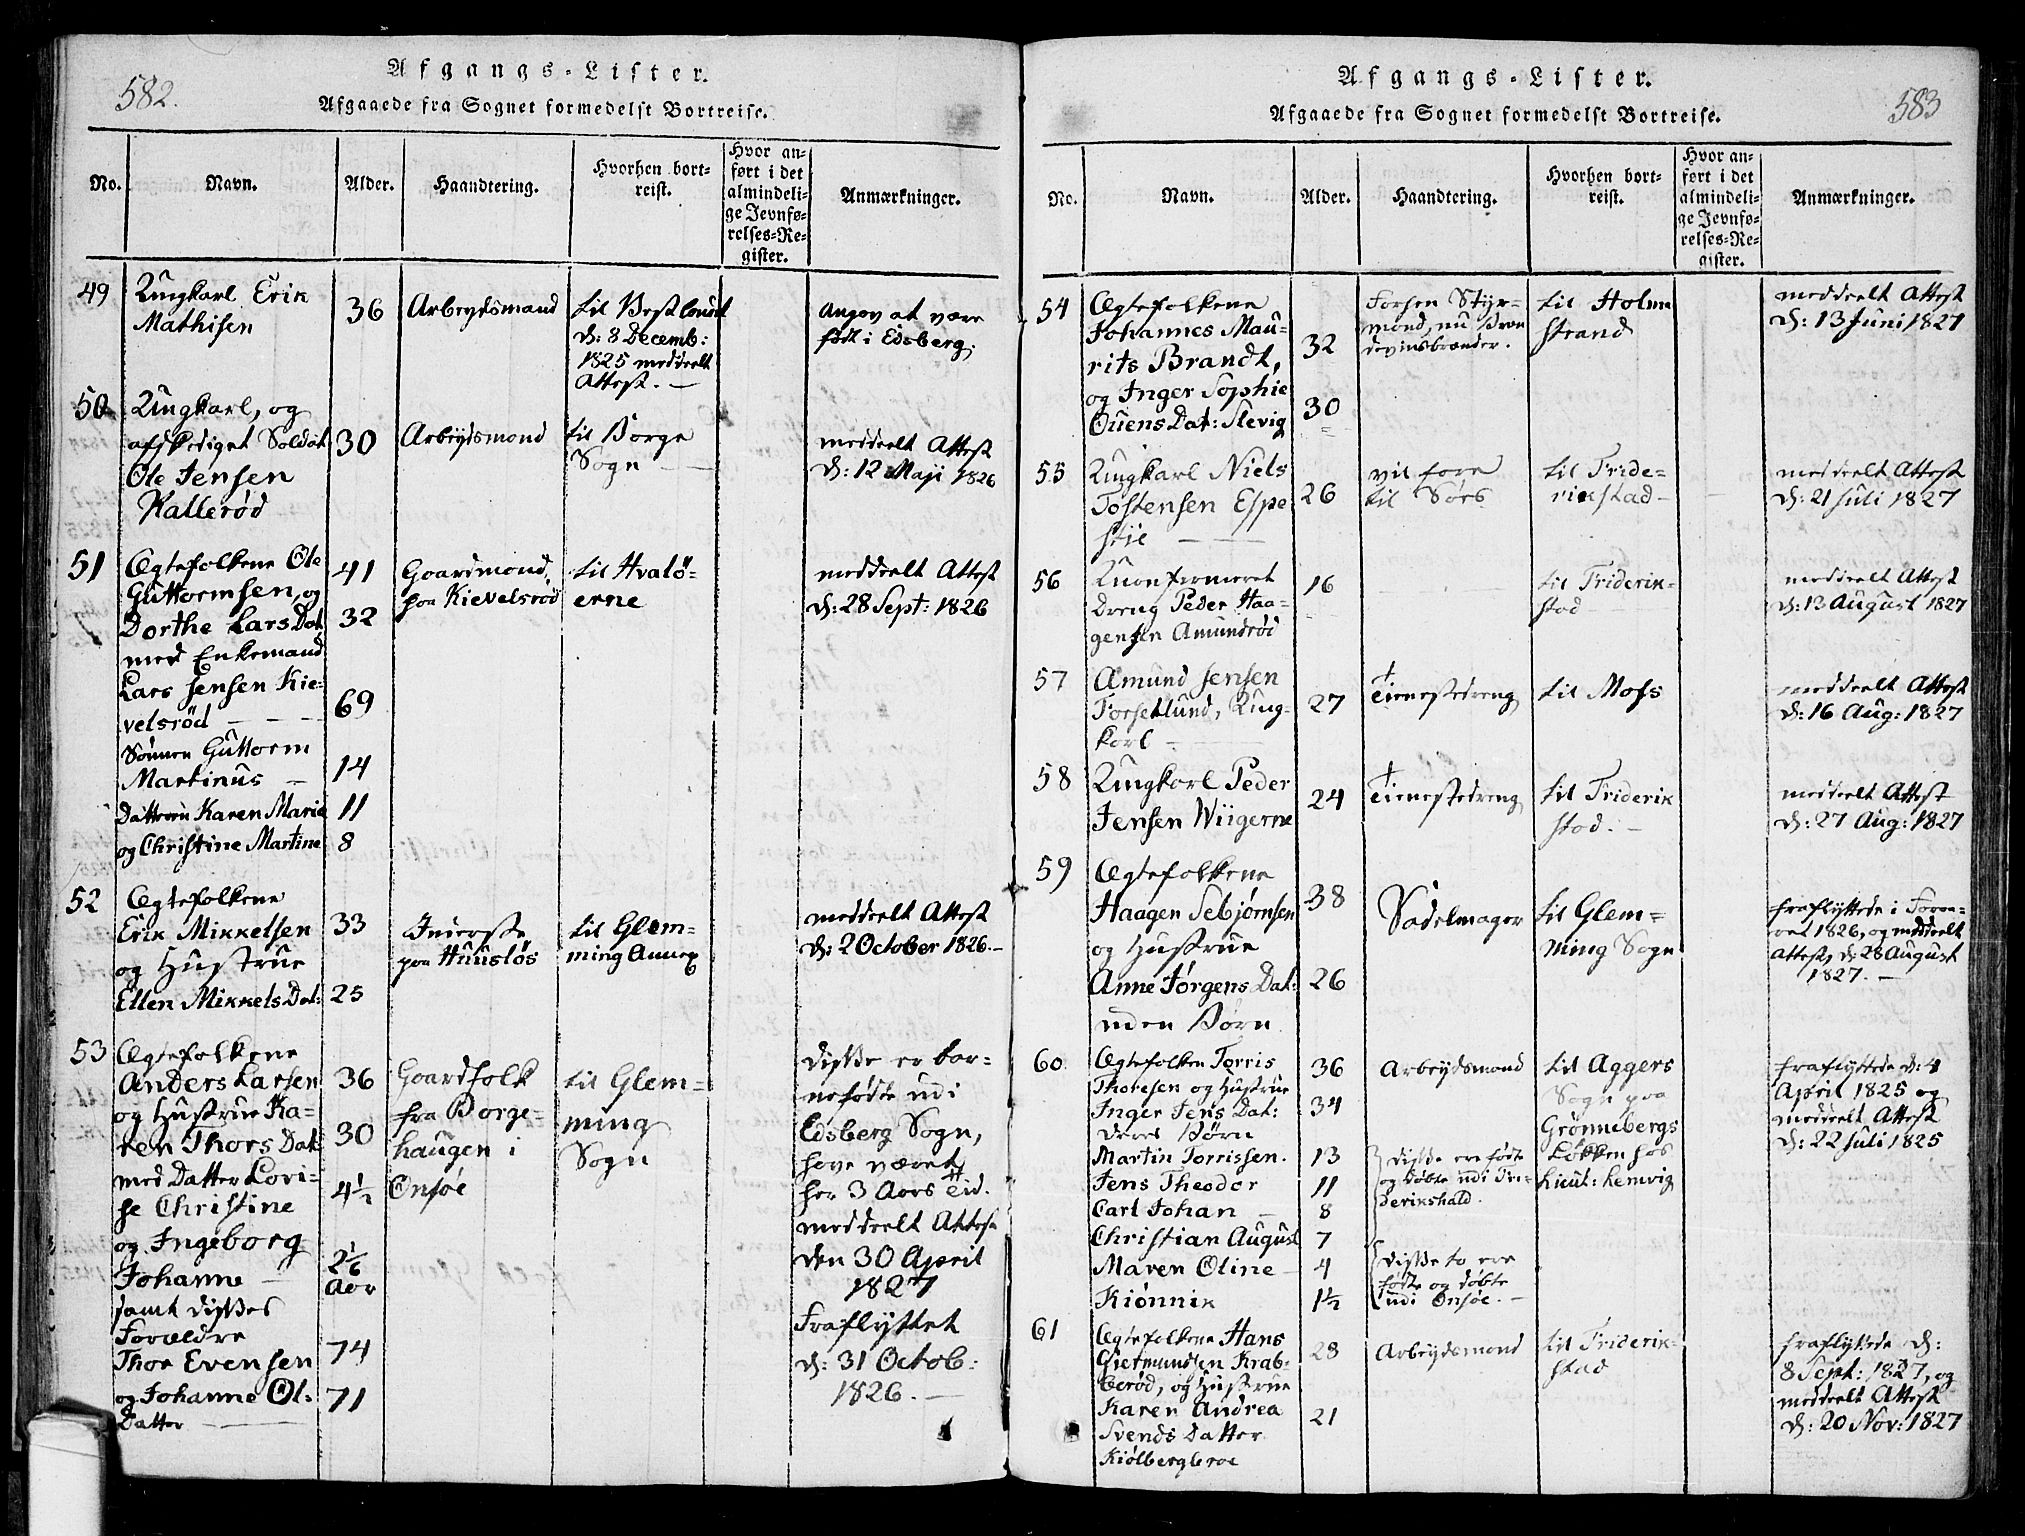 582.
Afgangs-Lister.
Afgaaede fra Sognet formedelst Bortreise.
No.
Navn.
Alder.
Haandtering.
Hvorhen bort-
reist.
Hvor an-
ført i det
almindeli-
ge Jevnfø-
relses-Re-
gister.
Anmærkninger.
49
Ungkarl Erik
Mathisen
36
Arbeydsmand
til
d: 8 Decemb:
1825 meddeelt
Attest. -
Angov at være
født i Edsberg.
50
Ungkarl, og
afskediget Soldat
Ole Jensen
Kallerød
30
Arbeydsmand
til Borge
Sogn
meddeelt Attest
d: 12 Maji 1826
51
Ægtefolkene Ole
Guttormsen, og
Dorthe LarsDat
med Enkemand
Lars Jensen Kie-
velsröd
Sönnen Guttorm
Martinus
Datteren Karen Marie
og Christine Martine
41
32
69
14
11
8
Gaardmand
paa Kievelsröd
til Hvalö-
erne
meddeelt Attest
d: 28 Sept: 1826
52
Ægtefolkene
Erik Mikkelsen
og Hustrue
Ellen MikkelsDat:
33
25
Inderste
paa Huusløs
til Glem-
ming Annex
meddeelt Attest
d: 2 October 1826.-
53
Ægtefolkene
Anders Larsen
og Hustrue Ka-
ren Thors Dat
med Datter Lovi-
se Christine
og Ingeborg
Johanne
samt disses
Forældre
Thor Evensen
og Johanne Ol:
Datter
36
30
4½
2 1/6
Aar
74
71
Gaardfolk
fra Borge-
haugen i
Onsøe
til Glem-
ming
Sogn
disse er bar-
nefødte udi
Edsberg Sogn,
have været
her 3 Aars Tid.
meddeelt Attest
den 30 April
1827
Fraflyttet
d: 31 Octob:
1826. -
583
Afgangs-Lister.
Afgaaede fra Sognet formedelst Bortreise.
No.
Navn.
Alder.
Haandtering.
Hvorhen bort-
reist.
Hvor an-
ført i det
almindeli-
ge Jevnfø-
relses-Re-
gister.
Anmærkninger.
54
Ægtefolkene
Johannes Mau-
rits Brandt,
og Inger Sophie
Ouens Dat: Slevig
32
30
Forhen Styr-
mand, nu Bræn-
devinsbrænder.
til Holm
strand
meddeelt Attest
d: 13 Juni 1827
55
Ungkarl Niels
Tostensen Espe
stie
26
vil fare
til Søes
til Fride-
rikstad
meddeelt Attest
d: 21 Juli 1827
56
Kuonfermeret
Dreng Peder Haa-
gensen Amundrød
16
til Friderik-
stad
meddeelt Attest
d: 13 August 1827
57
Amund Jensen
Torsetlund, Ung-
karl
27
Tienestedreng
til Moss
meddeelt Attest
d: 16 Aug: 1827
58
Ungkarl Peder
Jensen Wiigerne
24
Tienestedreng
til Friderik
stad.
meddeelt Attest
d: 27 Aug: 1827
59
Ægtefolkene
Haagen Sebjørnsen
og Hustrue
Anne JørgensDat:
uden Börn
38
26
Sadelmager
til Glem-
ming Sogn
fraflyttede i Foraa-
ret 1826, og meddeelt
Attest, d: 28 August
1827. -
60.
Ægtefolken Torris
Thoresen og Hustrue
Inger Jens Dat:
deres Börn
Martin Torrissen.
Jens Theodor
Carl Johan
Christian August
Maren Oline
Kiönnik
36
34
13
11
8
7
4
1½
Arbeydsmand
disse ere fødte
og døbte udi Fri-
derikshald.
disse to ere
fødte og døbte
udi Onsøe. -
til Aggers
Sogn paa
Grönnebergs
Løkken hos
Lieut: Lemvig
fraflyttede d: 4
April 1825 og
meddeelt Attest
d: 22 Juli 1825
61
Ægtefolkene Hans
Giermundsen Krab-
berød, og Hustrue
Karen Andrea
Svends Datter
Kiölbergbroe
28
21
Arbeydsmand
til Friderik-
stad
fraflytede d:
8 Sept: 1827, og
meddeelt Attest
d: 20 Nov: 1827